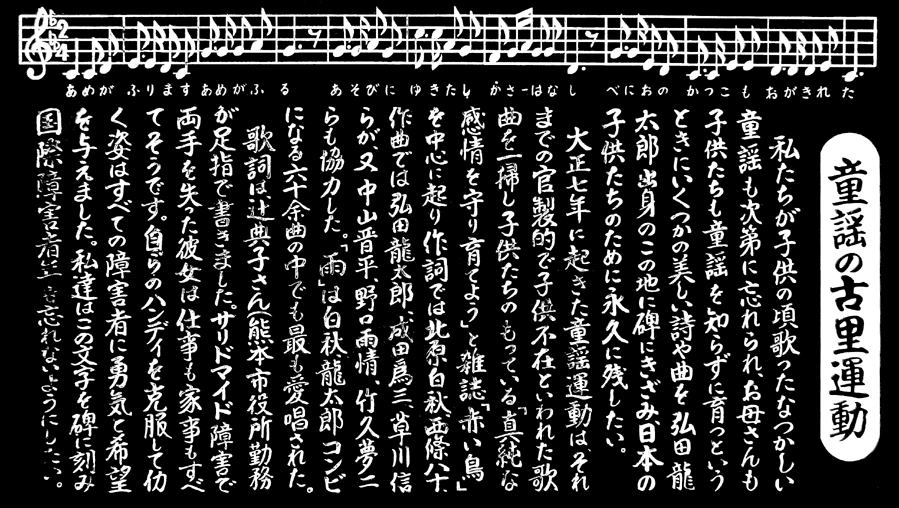 あめが ふります あめがふ る あそびに ゆきたし かさーはなし べにおの かっこ も おがきれ た
童謡の古里運動
私たちが子供の頃歌ったなつかしい
童謡も次第に忘れられ、お母さんも
子供たちも童謡を知らずに育つという
ときに、いくつかの美しい詩や曲を弘田龍
太郎出身のこの地に碑にきざみ日本の
子供たちのために永久に残したい。
大正七年に起きた童謡運動は、それ
までの官製的で子供不在といわれた歌
曲を一掃し子供たちのもっている「真純な
感情を守り育てよう」と雑誌「赤い鳥」
を中心に起り作詞では北原白秋、西條八十、
作曲では弘田龍太郎、成田為三、草川信
らが又中山晋平野口雨情、竹久夢二
らも協力した。「雨」は白秋、龍太郎コンビ
になる六十余曲の中でも最も愛唱された。
歌詞は、辻典子さん(熊本市役所勤務
が足指で書きました。サリドマイド障害で
両手を失った彼女は仕事も家事もすべ
てそうです。自らのハンディを克服して働
く姿はすべての障害者に勇気と希望
を与えました。私達はこの文字を碑に刻み
国際障害者年を忘れないようにしたい。